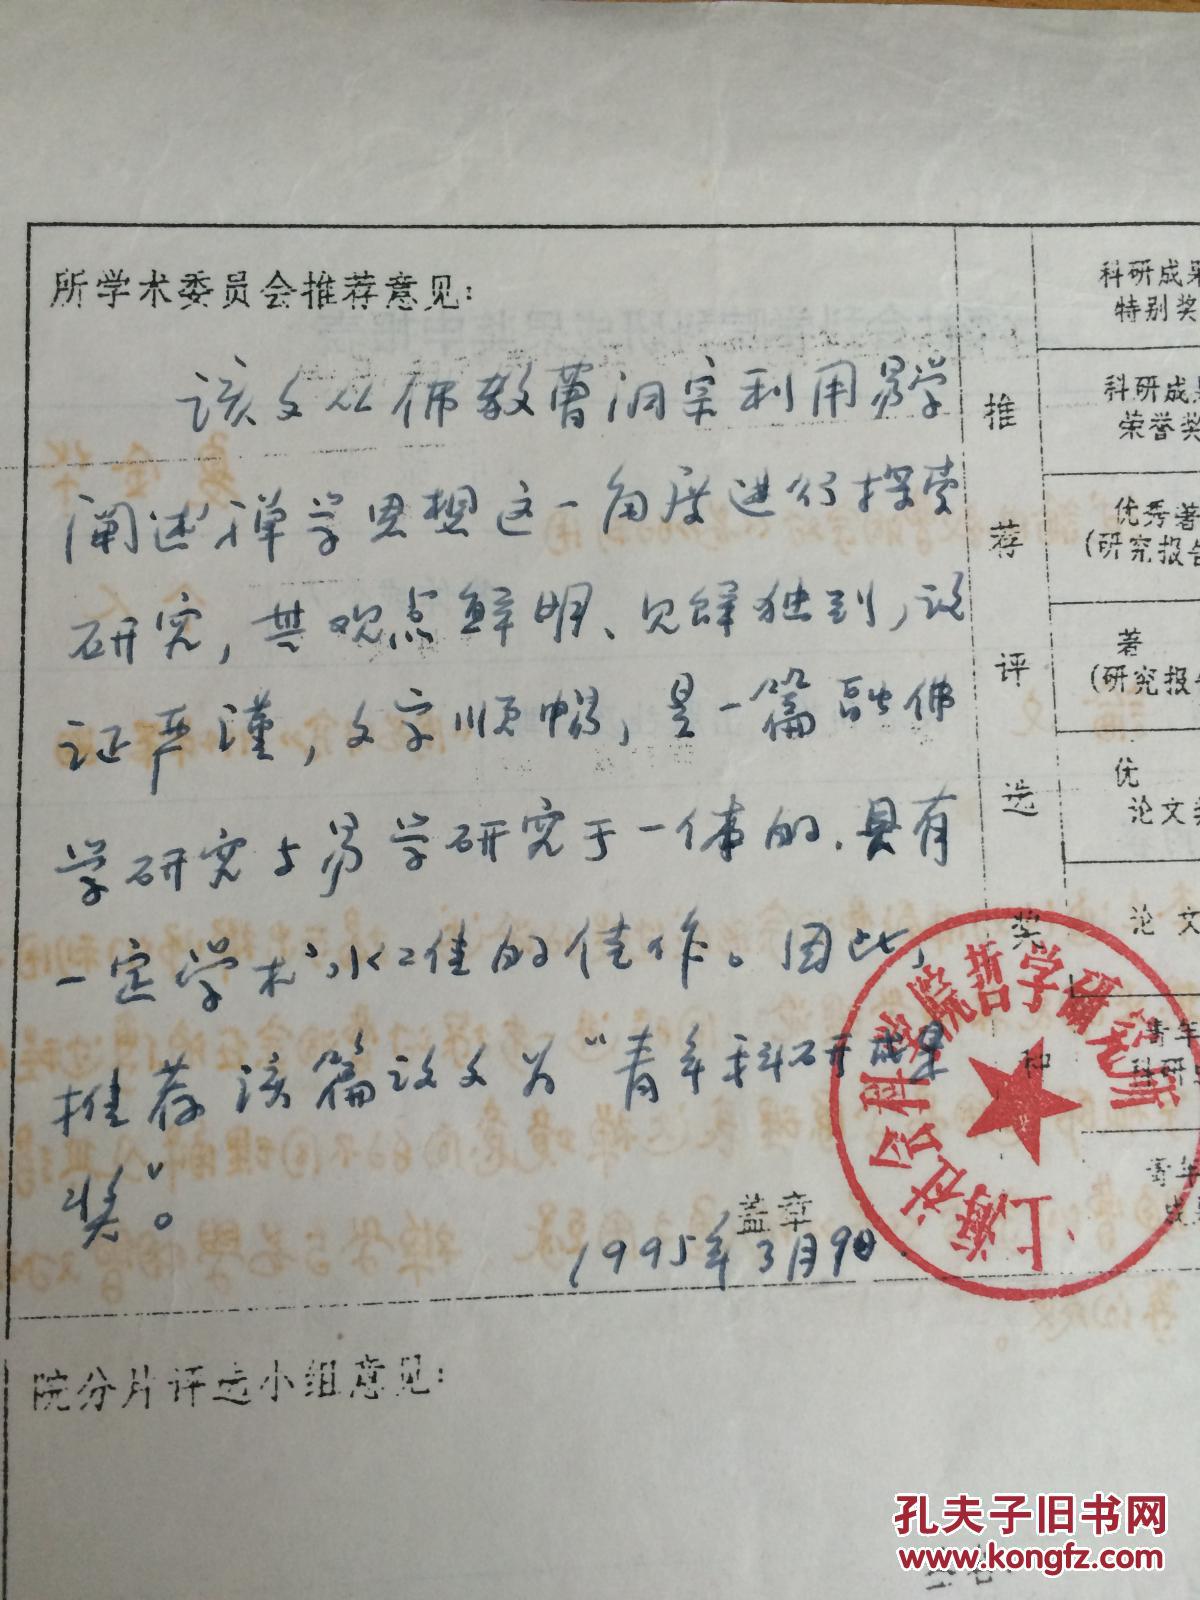 所学术委员会推荐意见：
该文从佛教曹洞宗利用易学
阐述禅学思想这一角度进行探索
研究，其观点鲜明、见解独到，论
证严谨，文字顺畅，是一篇融佛
学研究与易学研究于一体的、具有
一定学术水准的佳作。因此，
推荐该篇论文为“青年科研成果
奖”。
盖章
1995年3月9日
院分片评选小组意见：
推荐评选奖和
科研成果
特别奖
科研成果
荣誉奖
优秀著
(研究报告
著
(研究报告
优
论文奖
论文
青年
科研
青年
成果
上海社会科学院哲学研究所
孔夫子旧书网
www.kongfz.com